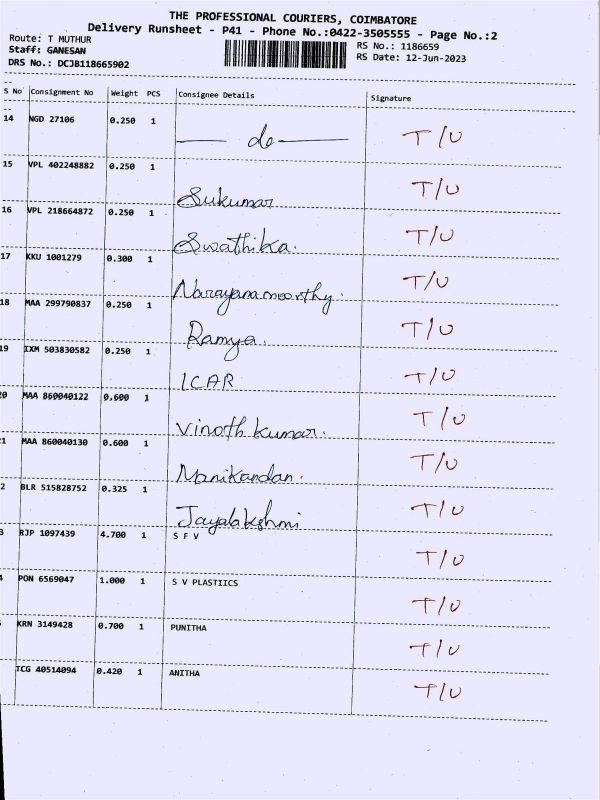 THE PROFESSIONAL COURIERS, COIMBATORE
Delivery Runsheet - P41 - Phone No.:0422-3505555 - Page No.:2
Route: T MUTHUR RS No.: 1186659
Staff: GANESAN RS Date: 12-Jun-2023
DRS No.: DCJB118665902
S No Consignment No Weight PCS Consignee Details Signature
14 NGD 27106 0.250 1 do T/U
15 VPL 402248882 0.250 1 Sukumar T/U
16 VPL 218664872 0.250 1 Swathika. T/U
17 KKU 1001279 0.300 1 Narayanamoorthy. T/U
18 MAA 299790837 0.250 1 Ramya. T/U
19 IXM 503830582 0.250 1 ICAR T/U
20 MAA 860040122 0.600 1 Vinoth kumar. T/U
1 MAA 860040130 0.600 1 Manikandan. T/U
2 BLR 515828752 0.325 1 Jayalakshmi T/U
3 RJP 1097439 4.700 1 S F V T/U
4 PON 6569047 1.000 1 S V PLASTIICS T/U
KRN 3149428 0.700 1 PUNITHA T/U
TCG 40514094 0.420 1 ANITHA T/U